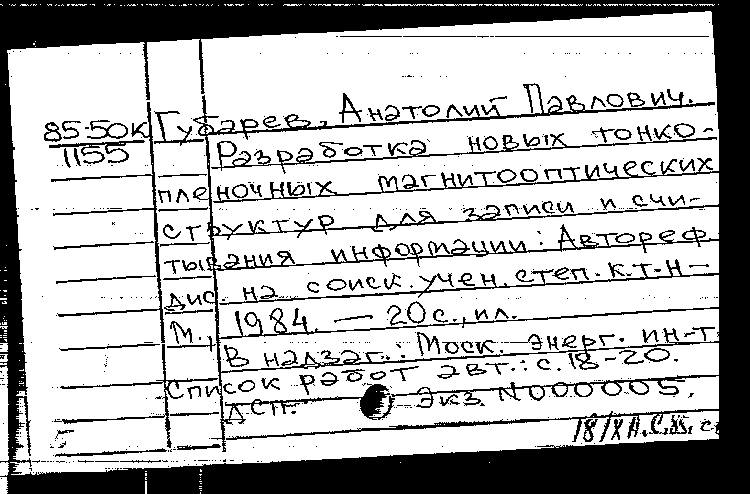 85-50К Губарев, Анатолий Павлович.
1155 Разработка новых тонко-
пленочных магнитооптических
структур для записи и счи-
тывания информации: Автореф
дис. на соиск. учен. степ. к.т.н –
М., 1984. — 20 с., ил.
В надзаг.: Моск. энерг. ин-т
Список работ авт.: с. 18-20.
ДСП. Экз. N000005.
18/X